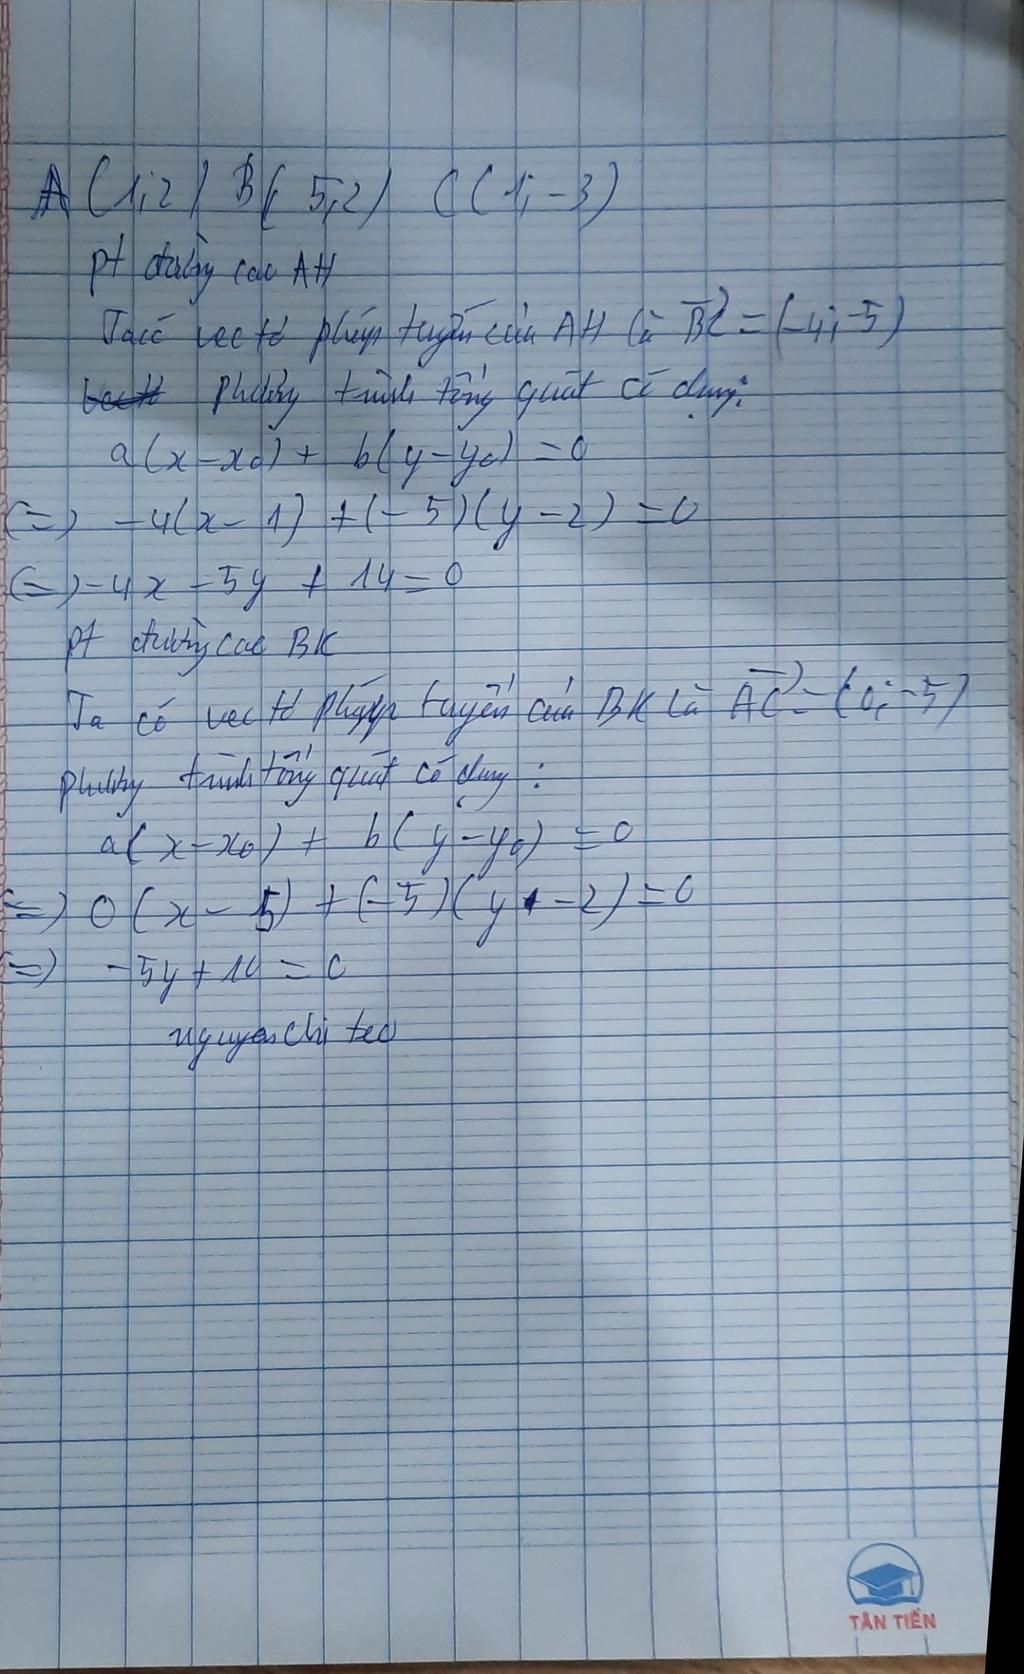 A (1;2) B(5;2) C(1;-3)
pt đường cao AH
Ta có vectơ pháp tuyến của AH là BC = (-4;-5)
phương trình tổng quát có dạng:
a(x-x0) + b(y-y0) = 0
(=) -4(x-1) + (-5)(y-2) = 0
(=) -4x -5y + 14 = 0
pt đường cao BK
Ta có vectơ pháp tuyến của BK là AC = (0;-5)
phương trình tổng quát có dạng:
a(x-x0) + b(y-y0) = 0
(=) 0(x-5) + (-5)(y-2) = 0
(=) -5y + 10 = 0
nguyen chi teo
TÂN TIẾN